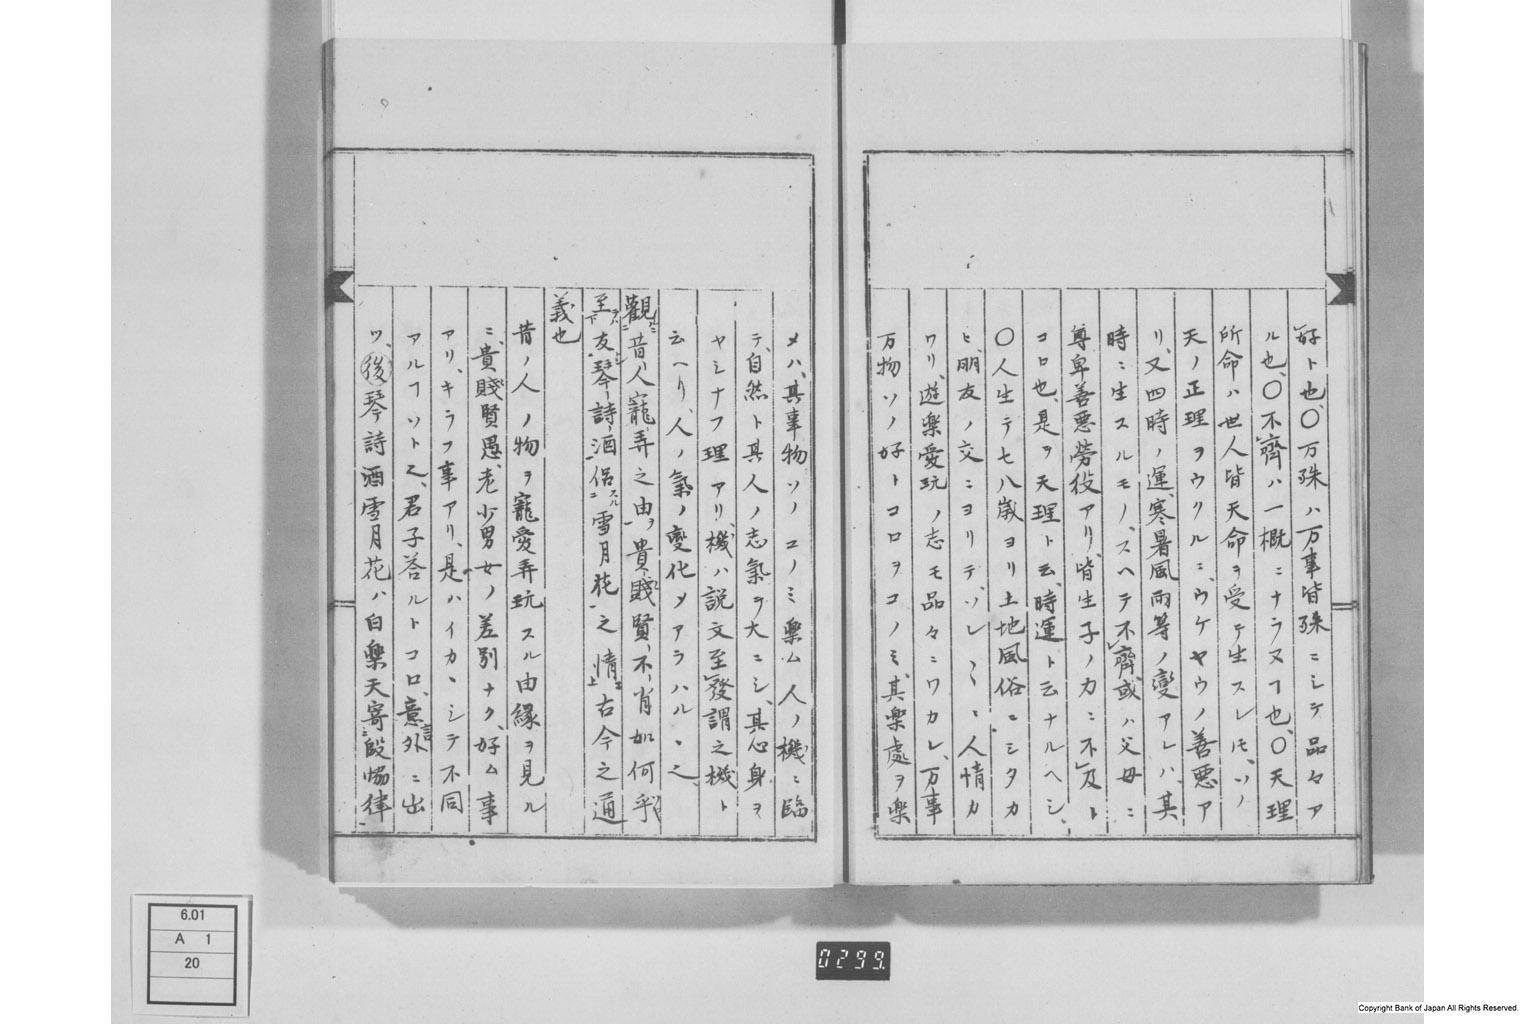 好ト也、〇万殊ハ万事皆殊ニシテ品々ア
ル也、〇不齊ハ一概ニナラヌヿ也、〇天理
所命ハ世人皆天命ヲ受テ生スレ𪜈、ソノ
天ノ正理ヲウクルニ、ウケヤウノ善悪ア
リ、又四時ノ運、寒暑風雨等ノ變アレハ、其
時ニ生スルモノ、スヘテ不齊或ハ父母ニ
尊卑善悪勞役アリ、皆生子ノカニ不及ト
コロ也、是ヲ天理ト云、時運ト云ナルヘシ、
〇人生テ七八歳ヨリ土地風俗ニシタカ
ヒ、朋友ノ交ニヨリテ、ソレ〳〵ニ人情カ
ワリ、遊樂愛玩ノ志モ品々ニワカレ、万事
万物ソノ好トコロヲコノミ、其樂處ヲ樂
メハ、其事物ソノコノミ樂ム人ノ機ニ臨
テ、自然ト其人ノ志氣ヲ大ニシ、其心身ヲ
ヤシナフ理アリ、機ハ説文至發謂之機ト
云ヘリ、人ノ氣ノ變化メアラハルヽ之、
觀昔人寵弄之由、貴賤賢不肖如何乎
至友琴詩酒侶雪月花之情古今之通
義也
昔ノ人ノ物ヲ寵愛弄玩スル由縁ヲ見ル
ニ、貴賤賢愚、老少男女ノ差別ナク、好ム事
アリ、キラフ事アリ、是ハイカヽシテ不同
アルヿソト之、君子荅ルトコロ、意言外ニ出
ツ、後琴詩酒雪月花ハ白樂天寄殷恊律
6.01
A 1
20
0299
Copyright Bank of Japan All Rights Reserved.